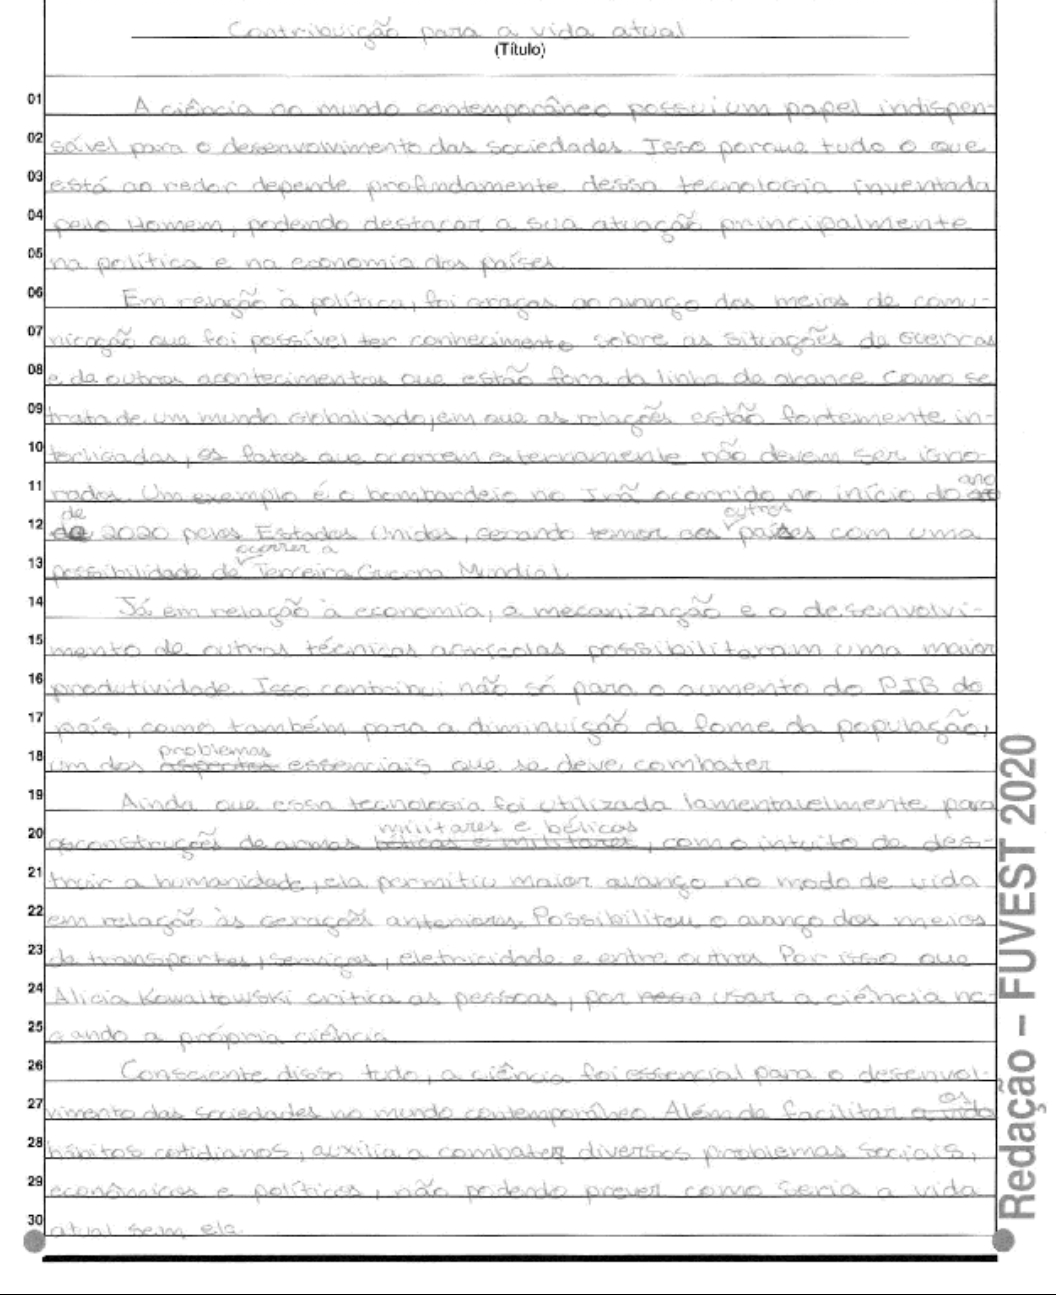 Contribuição para a vida atual
(Título)
01 A ciência no mundo contemporâneo possui um papel indispen-
02 sável para o desenvolvimento das sociedades. Isso porque tudo o que
03 está ao redor depende profundamente dessa tecnologia inventada
04 pelo Homem, podendo destacar a sua atuação principalmente
05 na política e na economia dos países.
06 Em relação à política, foi graças ao avanço dos meios de comu-
07 nicação que foi possível ter conhecimento sobre as situações de guerras
08 e de outros acontecimentos que estão fora da linha de alcance. Como se
09 trata de um mundo globalizado, em que as relações estão fortemente in-
10 terligadas, os fatos que ocorrem externamente não devem ser igno-
11 rados. Um exemplo é o bombardeio no Irã ocorrido no início do ano
12 de 2020 pelos Estados Unidos, gerando temor aos outros países com uma
13 possibilidade de ocorrer a Terceira Guerra Mundial.
14 Já em relação à economia, a mecanização e o desenvolvi-
15 mento de outras técnicas agrícolas possibilitaram uma maior
16 produtividade. Isso contribui não só para o aumento do PIB do
17 país, como também para a diminuição da fome da população,
18 um dos problemas essenciais que se deve combater.
19 Ainda que essa tecnologia foi utilizada lamentavelmente para
20 as construções de armas militares e bélicas, com o intuito de des-
21 truir a humanidade, ela permitiu maior avanço no modo de vida
22 em relação às gerações anteriores. Possibilitou o avanço dos meios
23 de transportes, serviços, eletricidade e entre outros. Por isso que
24 Alicia Kowaltowski critica as pessoas, por usar a ciência ne-
25 gando a própria ciência.
26 Consciente disso tudo, a ciência foi essencial para o desenvol-
27 vimento das sociedades no mundo contemporâneo. Além de facilitar os
28 hábitos cotidianos, auxilia a combater diversos problemas sociais,
29 econômicos e políticos, não podendo prever como seria a vida
30 atual sem ela.
Redação – FUVEST 2020